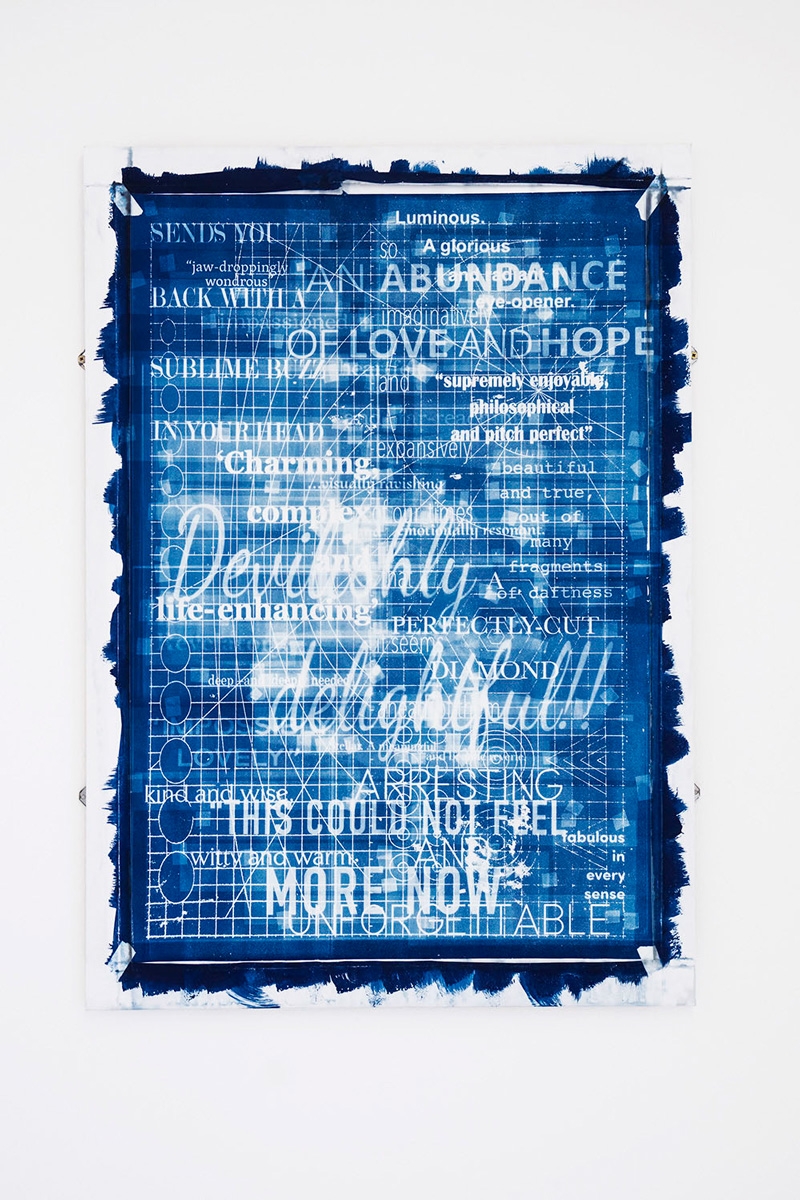 SENDS YOU
"jaw-droppingly
wondrous"
BACK WITH A
SUBLIME BUZZ
IN YOUR HEAD
Luminous.
so
A glorious
and radiant
eye-opener.
AN ABUNDANCE
imaginatively
OF LOVE AND HOPE
and
"supremely enjoyable,
philosophical
and pitch perfect"
expansively
'Charming,
complex
and
life-enhancing'
visually ravishing
beautiful
and true,
out of
many
fragments
of daftness
our times
emotionally resonant.
Devilishly
delightful!!
A
PERFECTLY-CUT
DIAMOND
it seems
deep and deeply needed
LOVELY
kind and wise
witty and warm
ARRESTING
AND
UNFORGETTABLE
"THIS COULD NOT FEEL
MORE NOW"
fabulous
in
every
sense